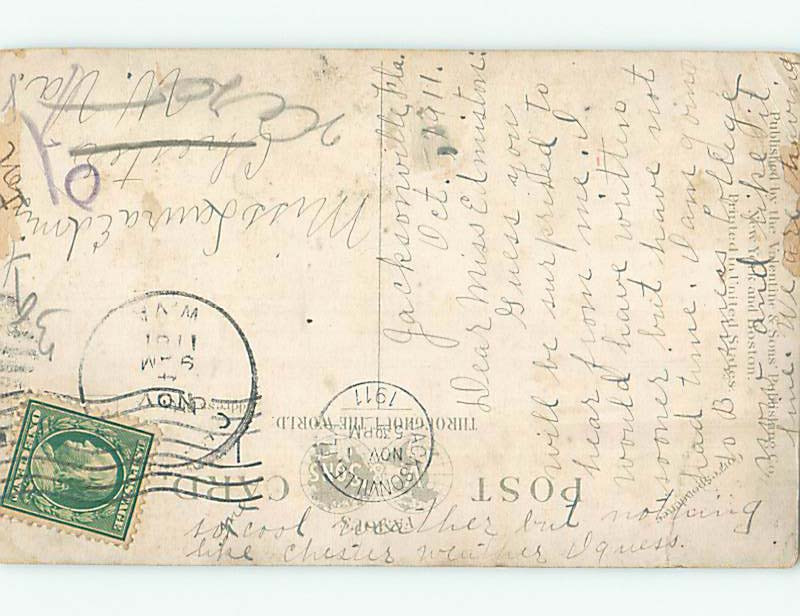 Jacksonville Fla.
Oct. , 1911.
Dear Miss Edmiston:
Guess you
will be surprised to
hear from me. I
would have written
sooner but have not
had time. I am going
to Business College
now and like it
fine. We are having
some cool weather but nothing
like Chester weather I guess.
Miss Laura Edmiston
Chester
W. Va.
POST CARD
THROUGHOUT THE WORLD.
FAMOUS
Published by the Valentine & Sons Publishing Co.
New York and Boston.
Printed in United States
JACKSONVILLE
NOV 1
5:30 PM
1911
NOV
4
9 AM
1911
W. VA.